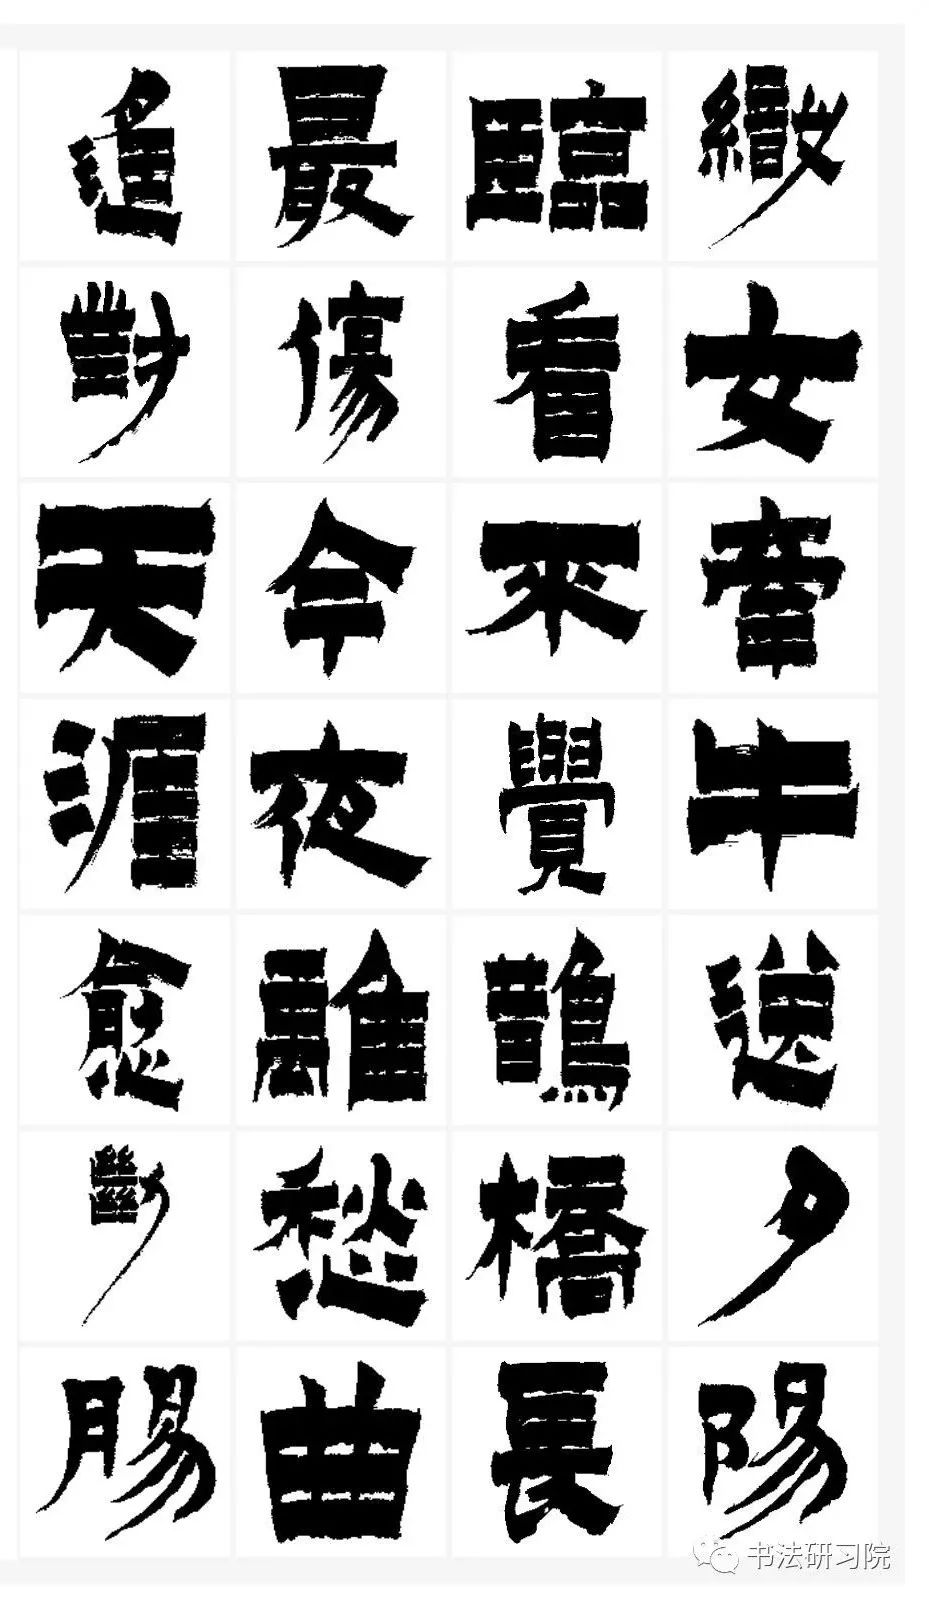 織女牽牛送夕陽
臨看來覺鵲橋長
最傷今夜離愁曲
遙對天涯愈斷腸
书法研习院